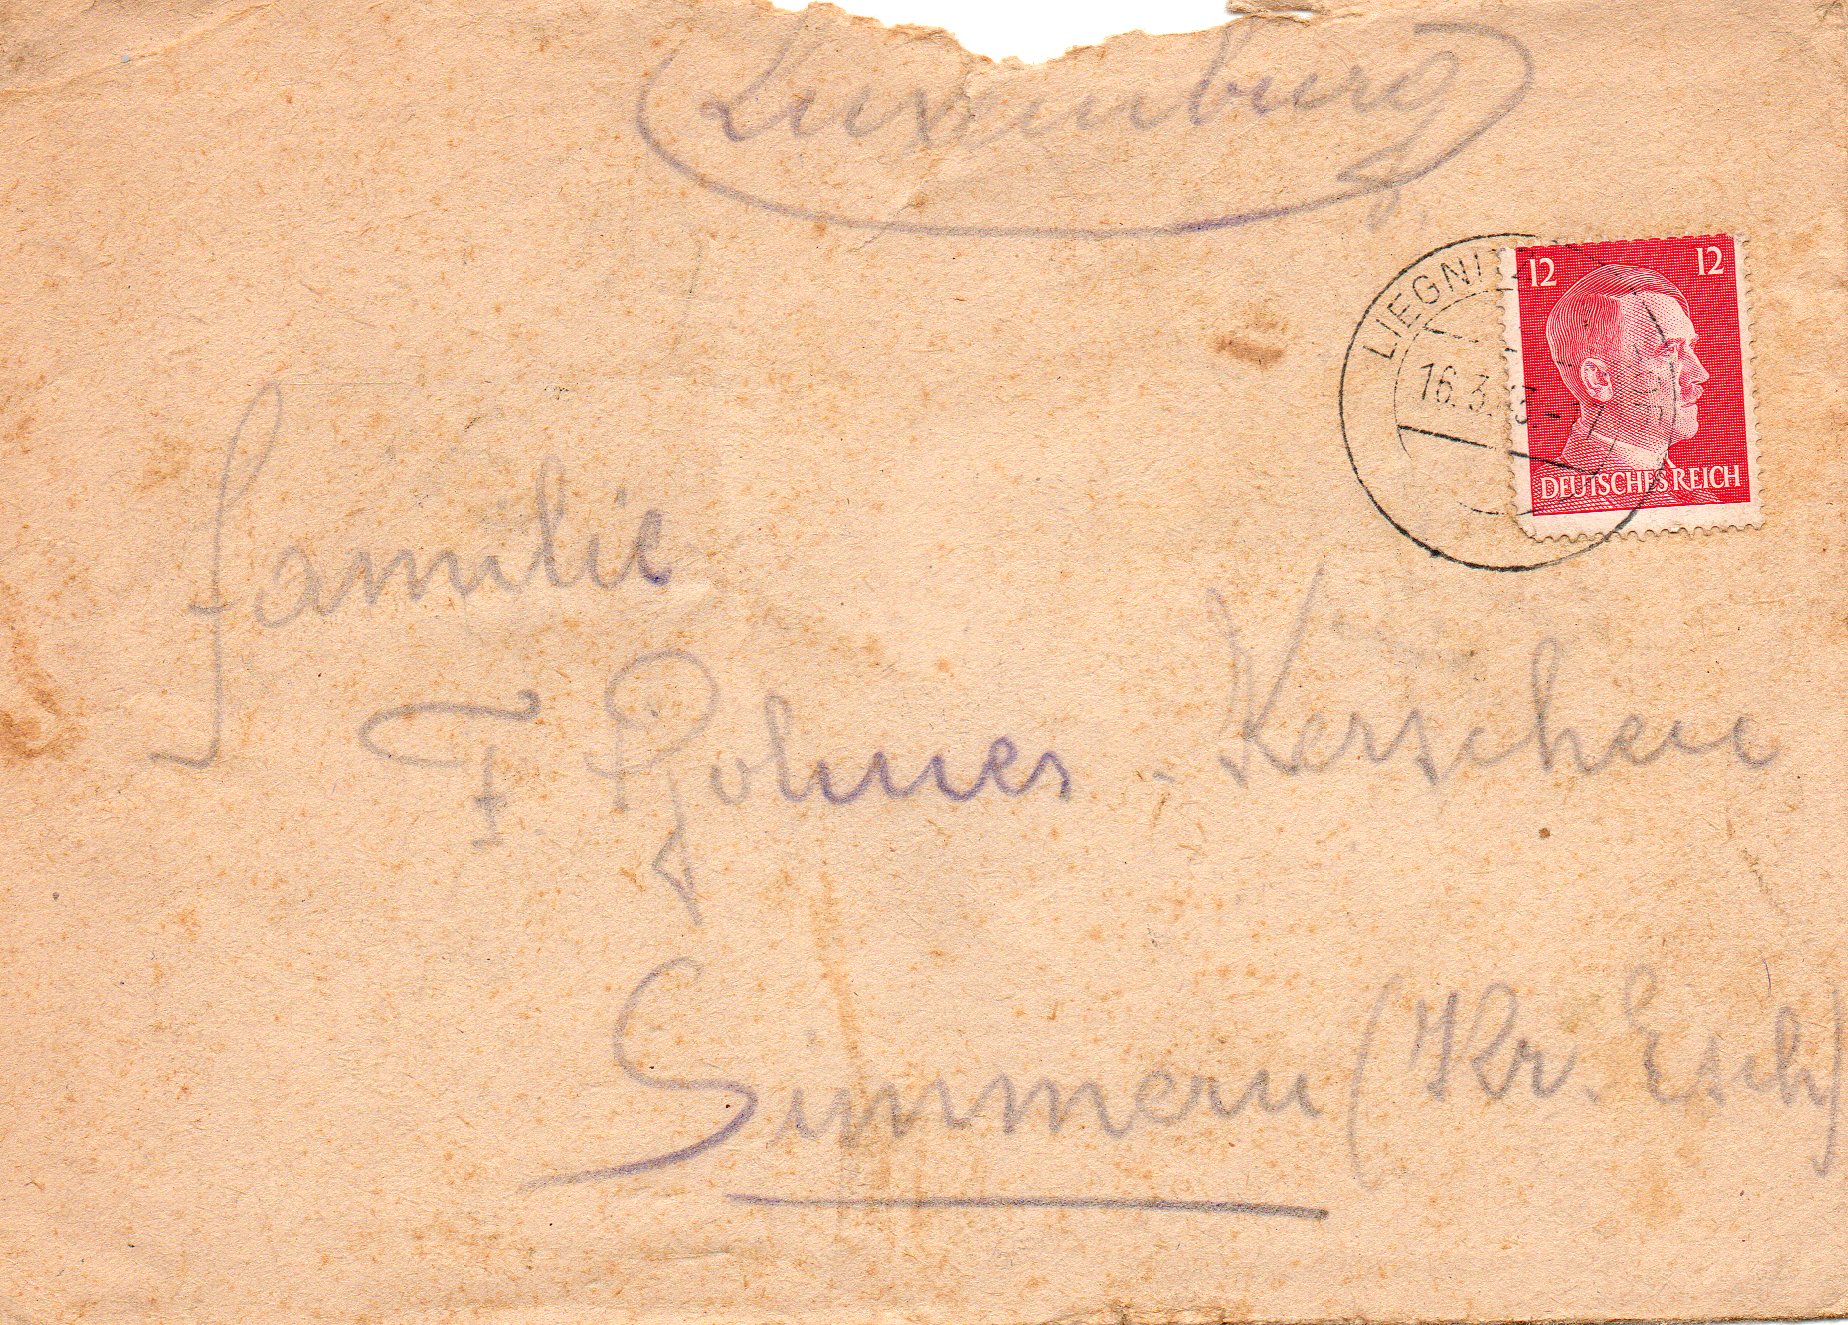 (Luxemburg)
LIEGNITZ
16.3.43
12 12
DEUTSCHES REICH
Familie
F. Kerschen
Simmern (Kr. Esch)